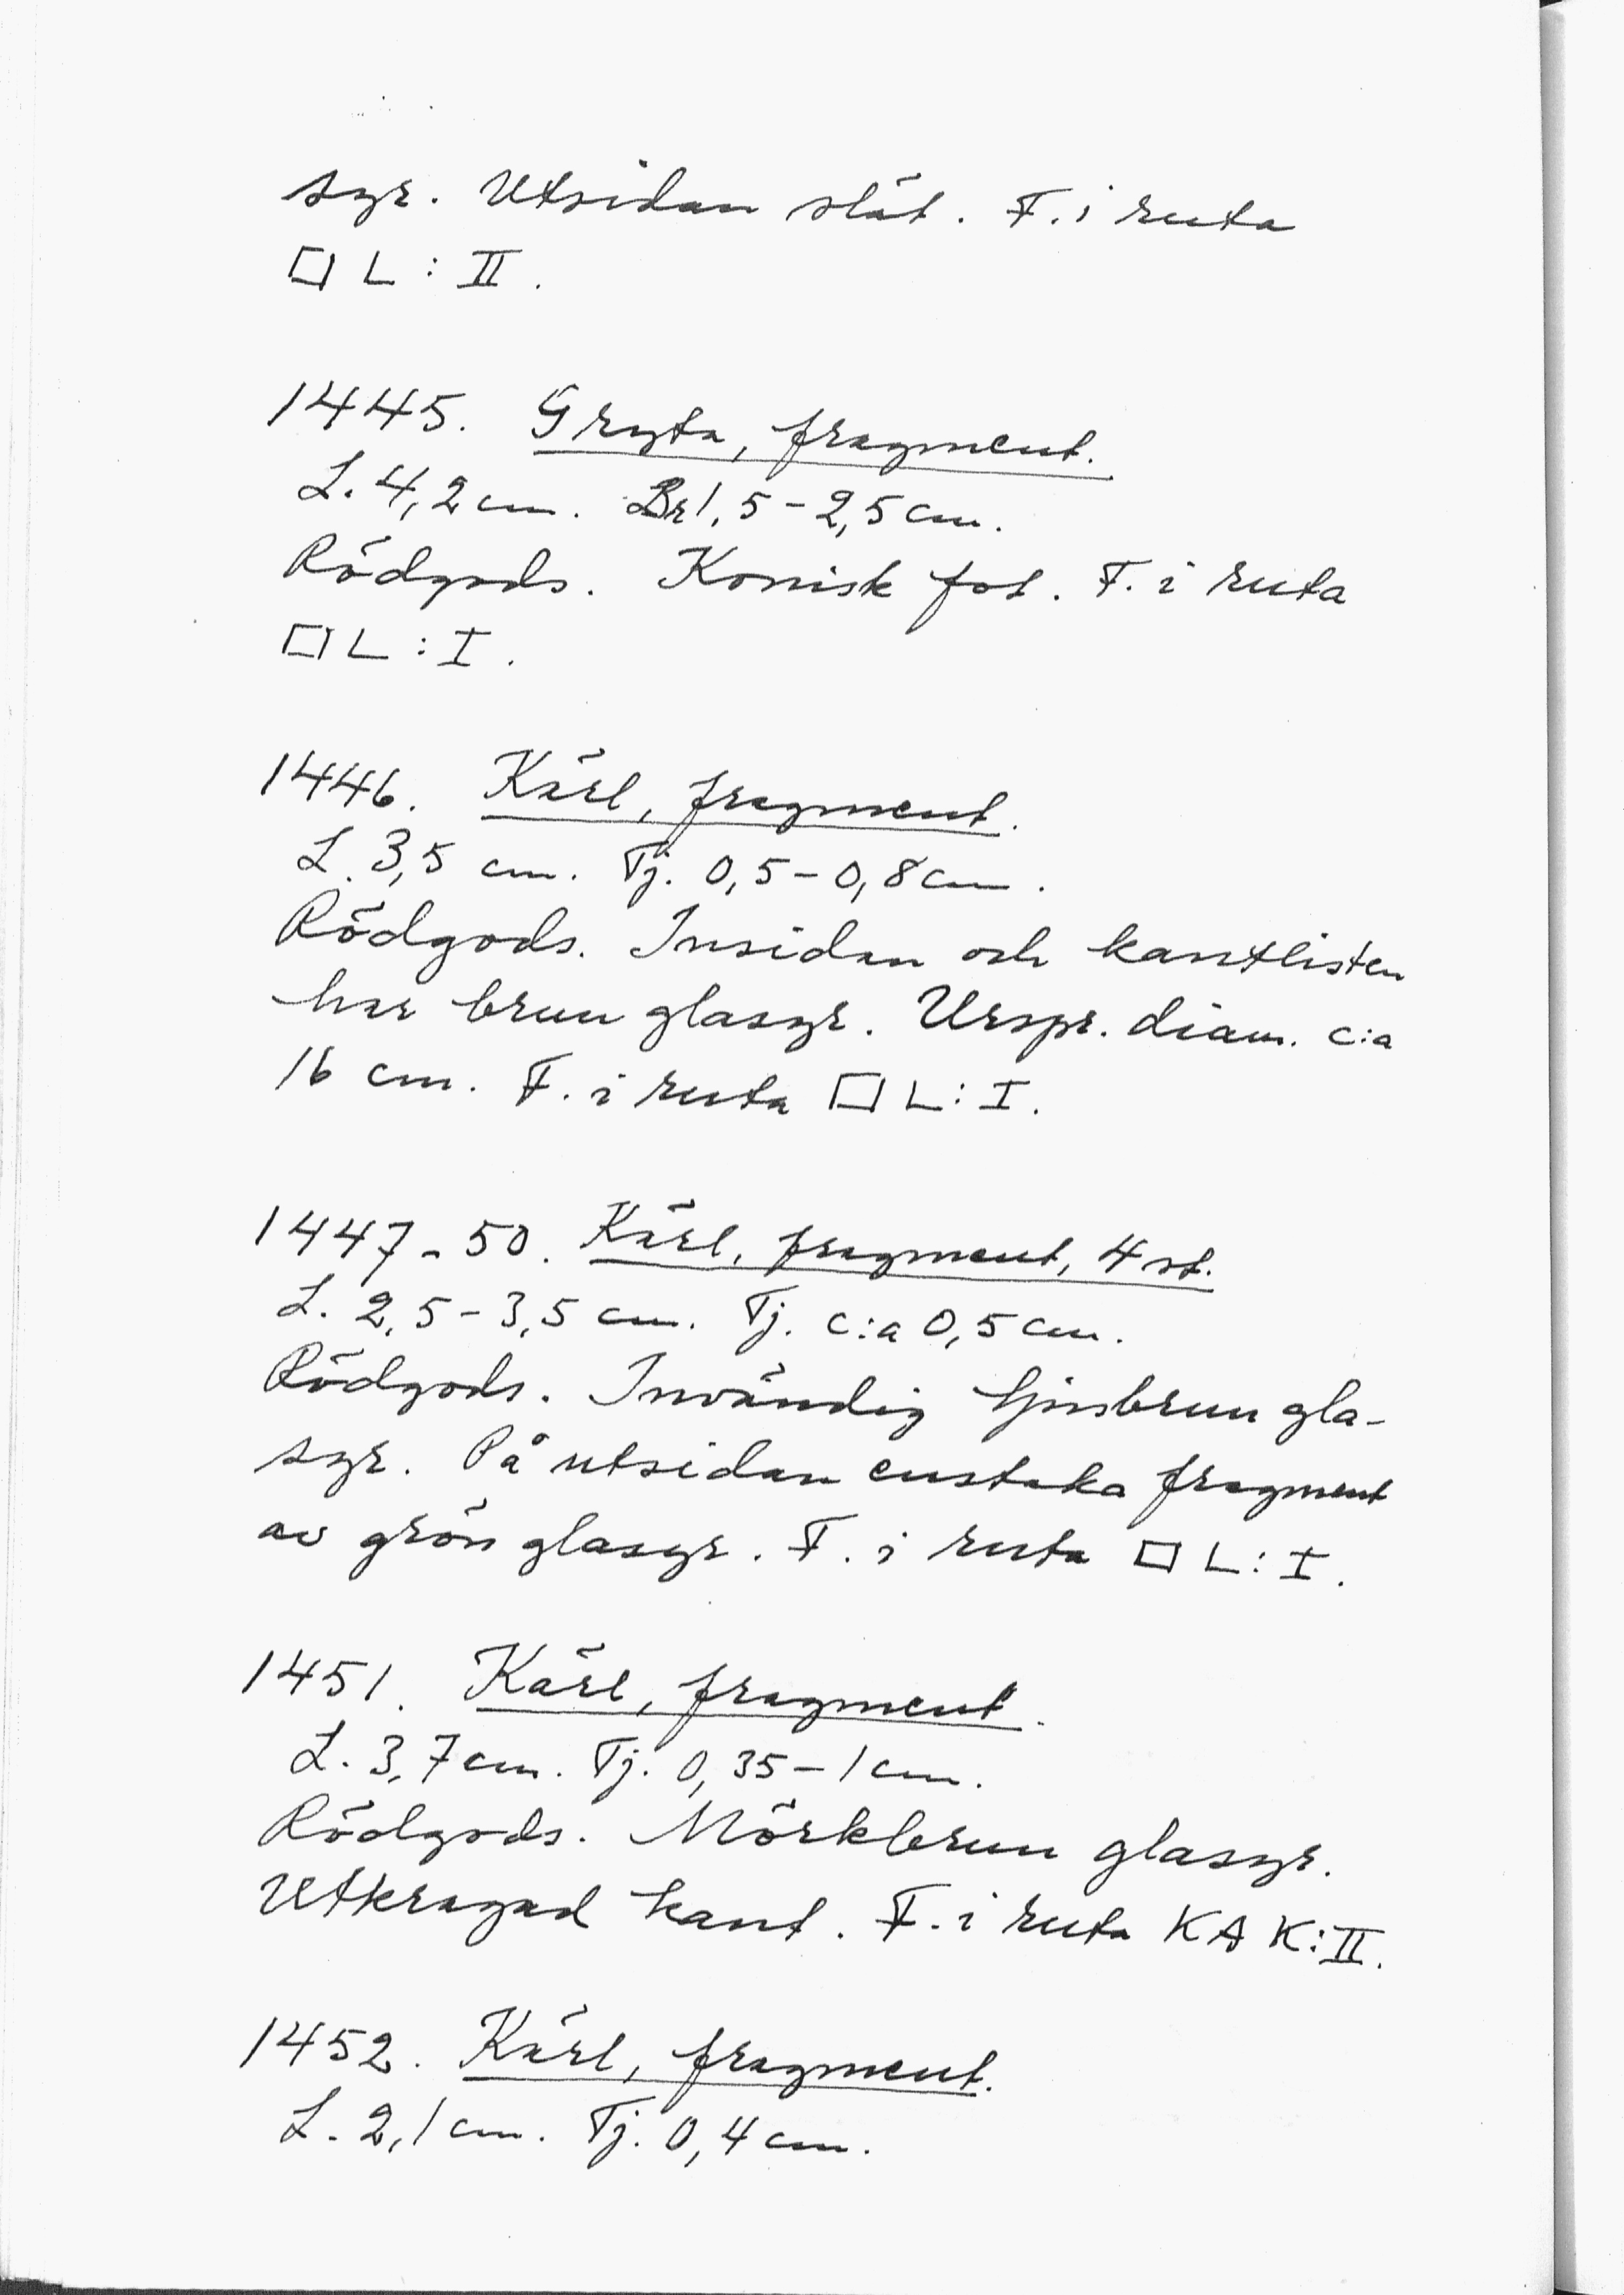 syr. Utsidan slät. F. i ruta
□ L : II.
1445. Gryta, fragment.
L. 4,2 cm. Br 1,5 - 2,5 cm.
Rödgods. Konisk fot. F. i ruta
□ L : I.
1446. Kärl, fragment.
L. 3,5 cm. Tj. 0,5 - 0,8 cm.
Rödgods. Insidan och kantlisten
har brun glasyr. Urspr. diam. c:a
16 cm. F. i ruta □ L : I.
1447-50. Kärl, fragment, 4 st.
L. 2,5 - 3,5 cm. Tj. c:a 0,5 cm.
Rödgods. Invändig ljusbrun gla-
syr. På utsidan enstaka fragment
av grön glasyr. F. i ruta □ L : I.
1451. Kärl, fragment.
L. 3,7 cm. Tj. 0,35 - 1 cm.
Rödgods. Mörkbrun glasyr.
Utkragad kant. F. i ruta KA K : II.
1452. Kärl, fragment.
L. 2,1 cm. Tj. 0,4 cm.